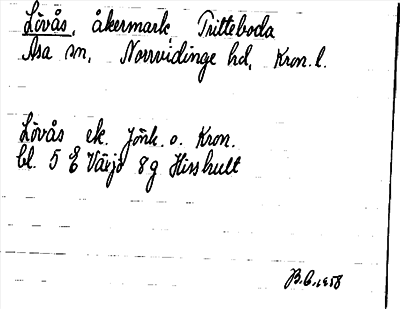 Lövås, åkermark, Tritteboda
Asa sn, Norrvidinge hd, Kron. l.
Lövås ek. Jönk. o. Kron.
bl. 5 E Växjö 8g Hisshult
B.O. 1958